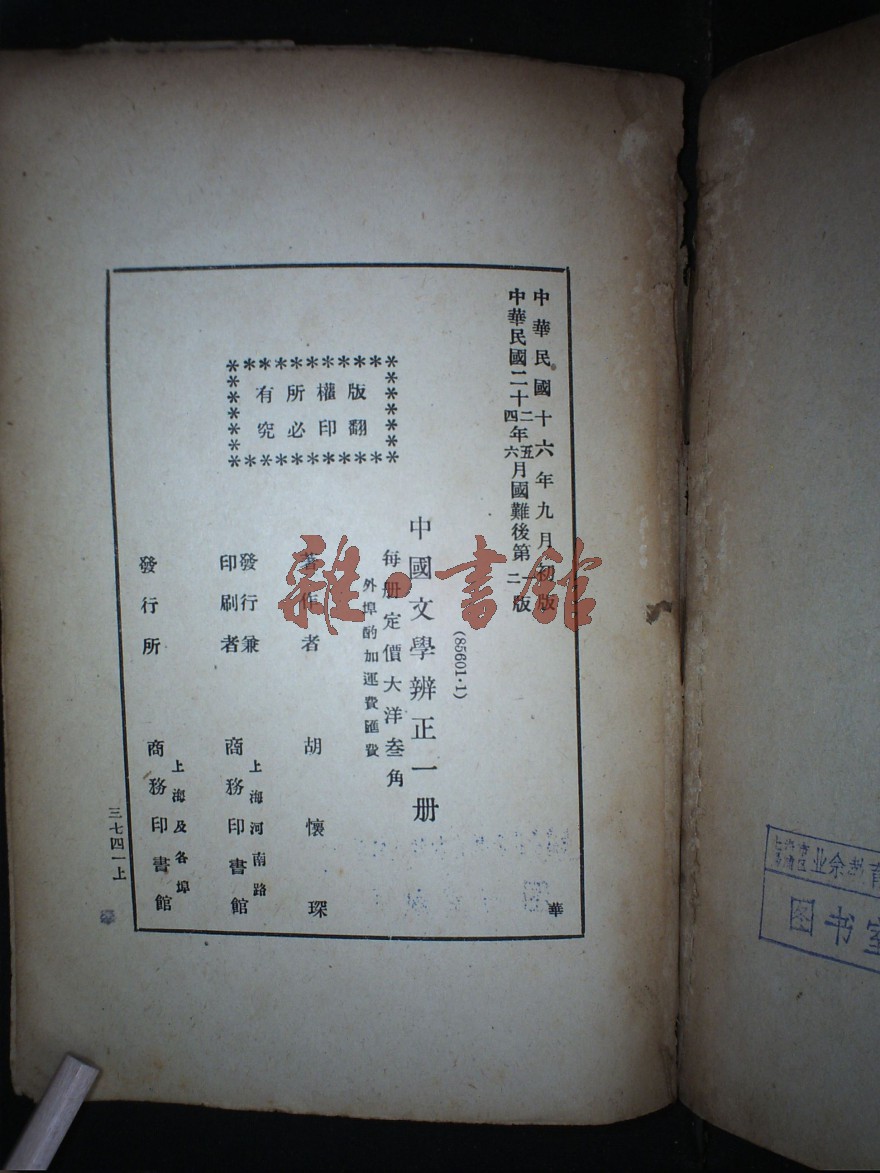 中華民國十六年九月初版
中華民國二十二四年五六月國難後第一二版
(85601·1)
中國文學辨正一册
每册定價大洋叁角
外埠酌加運費匯費
版權所有
翻印必究
著作者 胡懷琛
發行兼印刷者 上海河南路 商務印書館
發行所 上海及各埠 商務印書館
三七四一上
華
雜·書館
业余教育
图书室